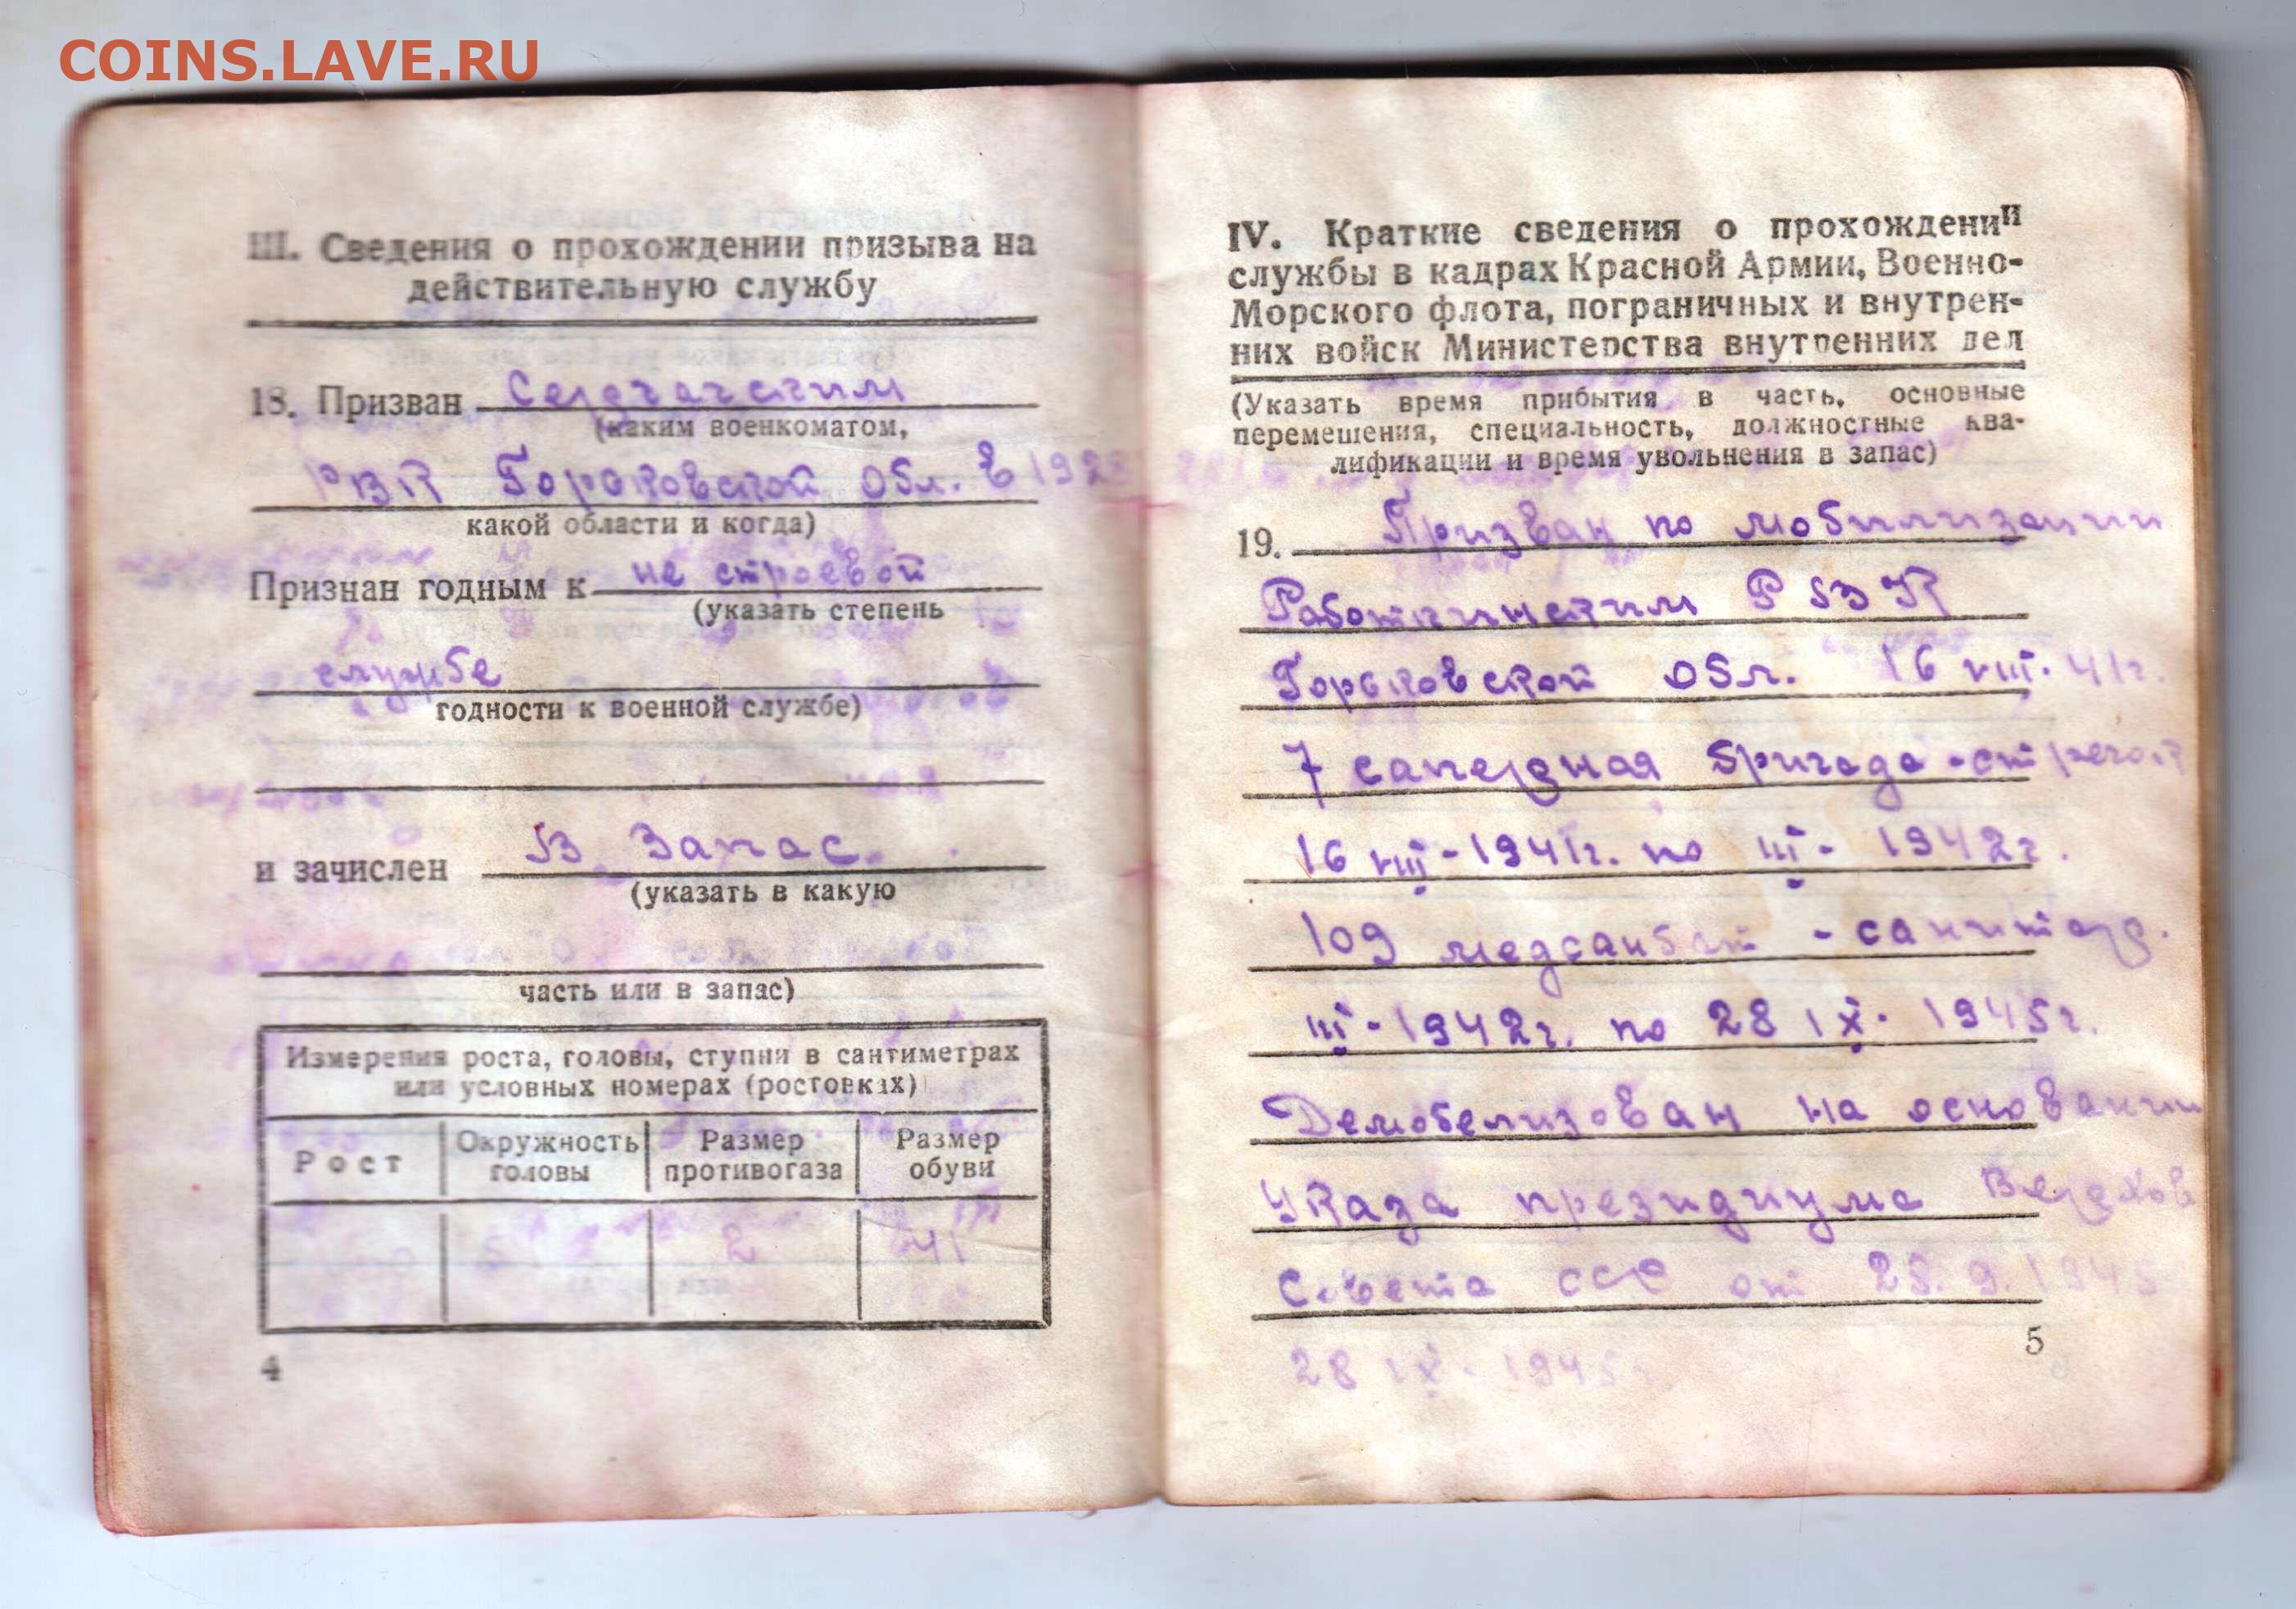 COINS.LAVE.RU
III. Сведения о прохождении призыва на
действительную службу
18. Призван Сергачским
(каким военкоматом,
РВК Горьковской обл. в 192
какой области и когда)
Признан годным к не строевой
(указать степень
службе
годности к военной службе)
и зачислен В Запас.
(указать в какую
часть или в запас)
Измерения роста, головы, ступни в сантиметрах
или условных номерах (ростовках)
Рост
Окружность головы
Размер противогаза
Размер обуви
2 41
4
IV. Краткие сведения о прохождении
службы в кадрах Красной Армии, Военно-
Морского флота, пограничных и внутрен-
них войск Министерства внутренних дел
(Указать время прибытия в часть, основные
перемещения, специальность, должностные ква-
лификации и время увольнения в запас)
19. Призван по мобилизации
Работкинским РВК
Горьковской обл. 16 VIII. 41г.
7 саперная бригада -
16 VIII - 1941г. по III - 1942г.
109 медсанбат - санитар.
III - 1942г. по 28 IX. 1945г.
Демобелизован на основании
Указа президиума Верхов
Совета СССР от 25.9.1945
28 IX - 1945г.
5